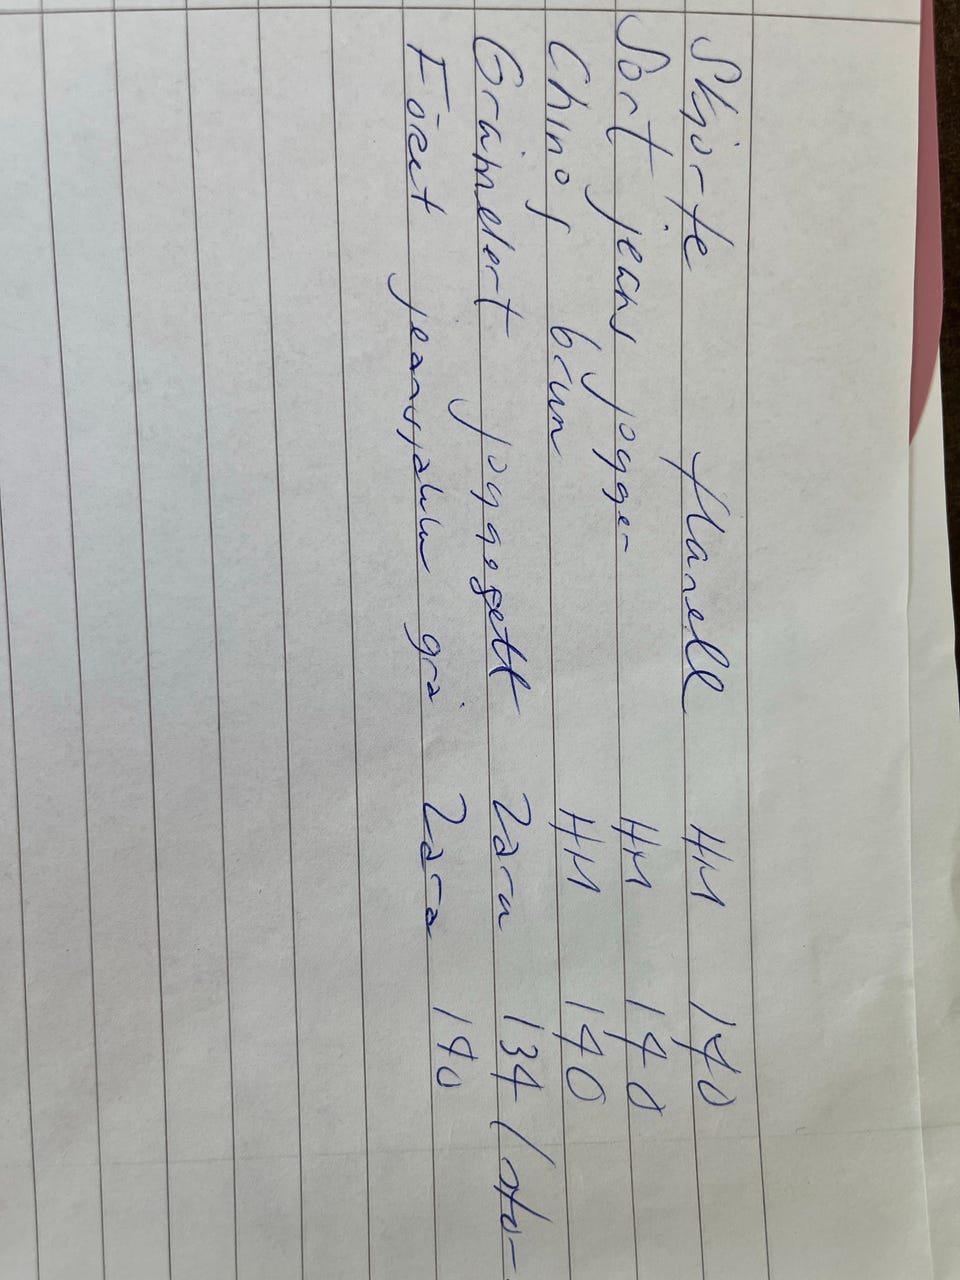 Skjorte flanell HM 140
Sort jeans jogger HM 140
Chinos brun HM 140
Gråmelert joggesett Zara 134 (stor
Fôret jeansjakke grå Zara 140